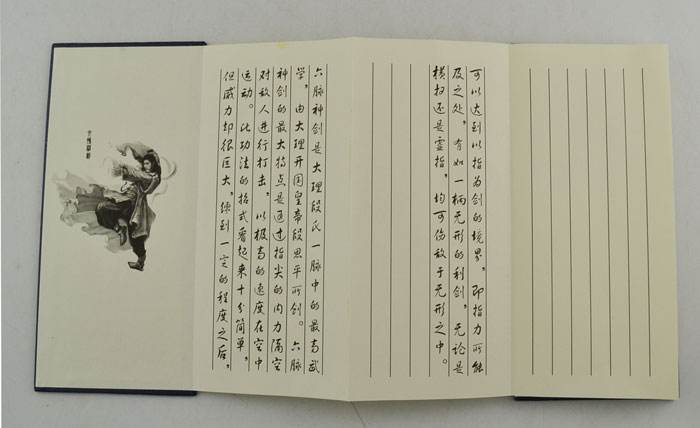 六脉神剑是大理段氏一脉中的最高武
学，由大理开国皇帝段思平所创。六脉
神剑的最大特点是通过指尖的内力隔空
对敌人进行打击，以极高的速度在空中
运动。此功法的招式看起来十分简单，
但威力却很巨大，练到一定的程度之后，
可以达到以指为剑的境界，即指力所能
及之处，有如一柄无形的利剑，无论是
横扫还是虚指，均可伤敌于无形之中。